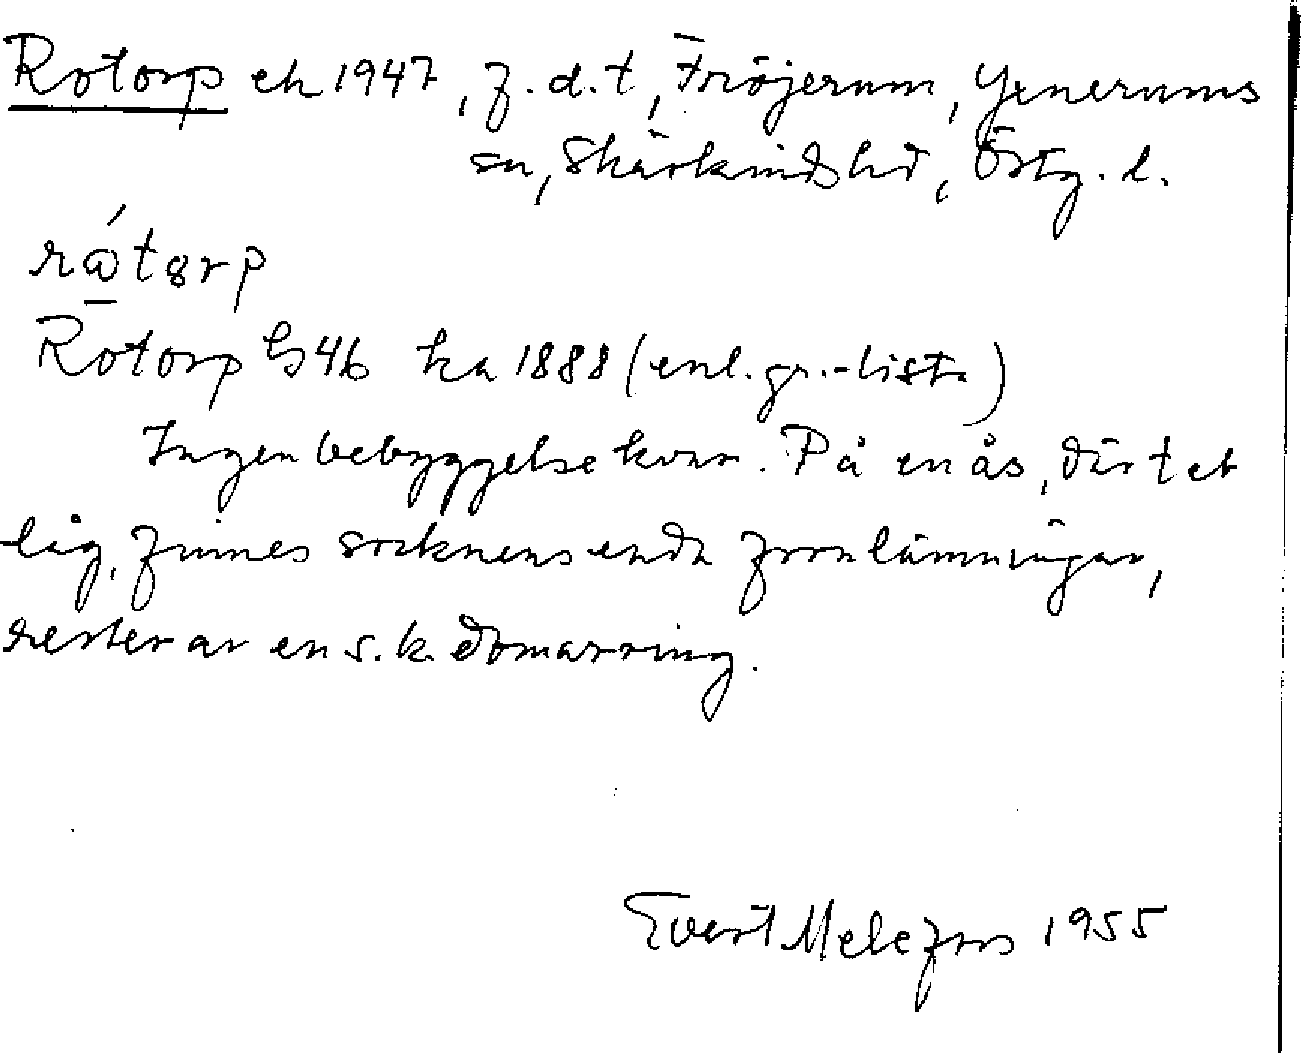 Rotorp ek 1947, f.d.t, Fröjerum, Yxnerums
sn, Skärkinds hd, Östg. l.
rótorp
Rotorp h 46 ka 1888 (enl. gr.-list.)
Ingen bebyggelse kvar. På en ås, där t et
låg, finnes socknens enda fornlämningar,
rester av en s.k. domarring.
Evert Melefors 1955